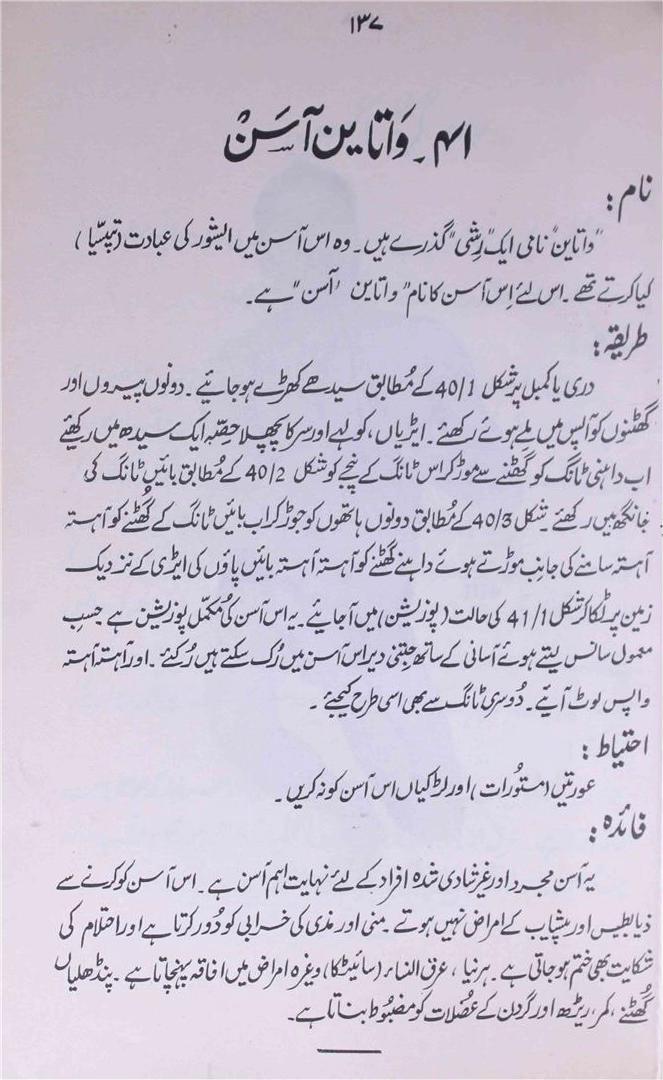 ۱۳۷
۴۱۔ وَاتاین آسَنْ
نام:
"واتاین" نامی ایک "رِشی" گذرے ہیں۔ وہ اس آسن میں ایشور کی عبادت (تپسیّا)
کیا کرتے تھے۔ اس لئے اِس آسن کا نام "واتاین آسن" ہے۔
طریقہ:
دری یا کمبل پر شکل 40/1 کے مُطابق سیدھے کھڑے ہو جائیے۔ دونوں پیروں اور
گھٹنوں کو آپس میں ملے ہوئے رکھئے۔ ایڑیاں، کولہے اور سر کا پچھلا حصّہ ایک سیدھ میں رکھئے
اب داہنی ٹانگ کو گھُٹنے سے موڑ کر اس ٹانگ کے پنجے کو شکل 40/2 کے مُطابق بائیں ٹانگ کی
جانگھ میں رکھئے۔ شکل 40/3 کے مُطابق دونوں ہاتھوں کو جوڑ کر اب بائیں ٹانگ کے گھُٹنے کو آہستہ
آہستہ سامنے کی جانب موڑتے ہوئے داہنے گھٹنے کو آہستہ آہستہ بائیں پاؤں کی ایڑی کے نزدیک
زمین پر ٹکا کر شکل 41/1 کی حالت (پوزیشن) میں آجائیے۔ یہ اس آسن کی مُکمّل پوزیشن ہے حسبِ
معمول سانس لیتے ہوئے آسانی کے ساتھ جِتنی دیر اس آسن میں رُک سکتے ہیں رُکئے۔ اور آہستہ آہستہ
واپس لوٹ آئیے۔ دُوسری ٹانگ سے بھی اسی طرح کیجئے۔
احتیاط:
عورتیں (مستُورات) اور لڑکیاں اس آسن کو نہ کریں۔
فائدہ:
یہ آسن مجرد اور غیر شادی شدہ افراد کے لئے نہایت اہم آسن ہے۔ اس آسن کو کرنے سے
ذیابطیس اور پیشاب کے امراض نہیں ہوتے۔ منی اور مذی کی خرابی کو دُور کرتا ہے اور احتلام کی
شکایت بھی ختم ہو جاتی ہے۔ ہرنیا، عرق النساء (سائیٹکا) وغیرہ امراض میں افاقہ پہنچاتا ہے۔ پنڈھلیاں
گھُٹنے، کمر، ریڑھ اور گردن کے عضلات کو مضبُوط بناتا ہے۔